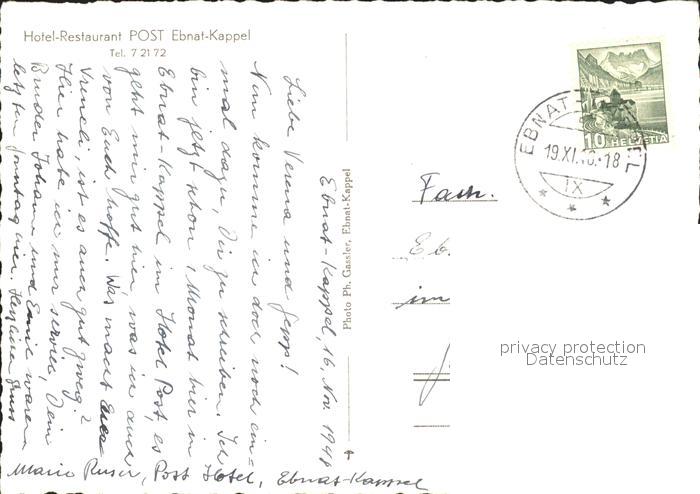 Hotel-Restaurant POST Ebnat-Kappel
Tel. 7 21 72
Ebnat-Kappel, 16. Nov. 1948
Liebe Verena und Sepp!
Nun komme ich doch noch ein-
mal dazu, Dir zu schreiben. Ich
bin jetzt schon 1 Monat hier in
Ebnat-Kappel im Hotel Post, es
geht mir gut hier, was ich auch
von Euch hoffe. Was macht Euer
Vreneli, ist es auch gut zweg?
Hier habe ich nur servier, Dein
Bruder Johann und Emil waren
letzten Sonntag hier. Herzliche Gruss
Marie Ruser, Post Hotel, Ebnat-Kappel
Photo Ph. Gassler, Ebnat-Kappel
10 HELVETIA
EBNAT
19.XI. -18
IX
Fam.
Eb.
im
privacy protection
Datenschutz